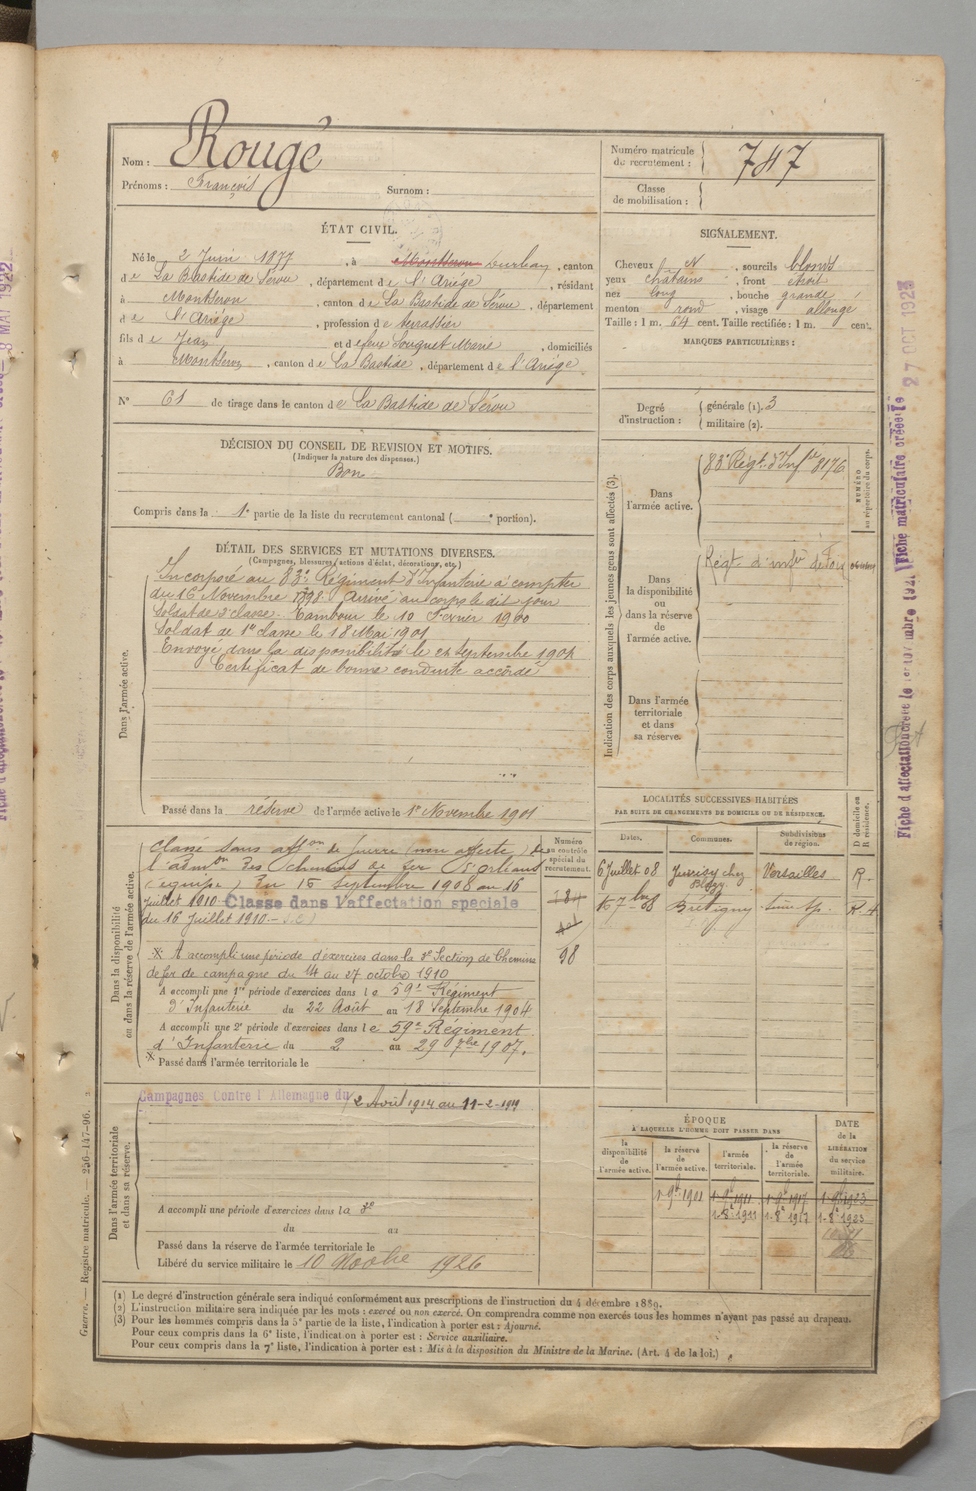 Nom : Rougé
Prénoms : François Surnom :
Numéro matricule du recrutement : 747
Classe de mobilisation :
ÉTAT CIVIL.
Né le 2 Juin 1877, à Montseron Durban, canton
de La Bastide de Sérou, département de l'Ariége, résidant
à Montseron, canton de La Bastide de Sérou, département
de l'Ariége, profession de
fils de Jean et de feue Souquet Marie, domiciliés
à Montseron, canton de La Bastide, département de l'Ariége
N° 61 de tirage dans le canton de La Bastide de Sérou
SIGNALEMENT.
Cheveux N, sourcils blonds
yeux châtains, front étroit
nez long, bouche grande
menton rond, visage allongé
Taille : 1 m. 64 cent. Taille rectifiée : 1 m. cent.
MARQUES PARTICULIÈRES :
Degré d'instruction : générale (1). 3
militaire (2).
DÉCISION DU CONSEIL DE REVISION ET MOTIFS.
(Indiquer la nature des dispenses.)
Bon
Compris dans la 1e partie de la liste du recrutement cantonal ( e portion).
DÉTAIL DES SERVICES ET MUTATIONS DIVERSES.
(Campagnes, blessures, actions d'éclat, décorations, etc.)
Dans l'armée active.
Incorporé au 83e Régiment d'Infanterie à compter
du 16 Novembre 1898. Arrivé au corps le dit jour
Soldat de 2e classe. Tambour le 10 Fevrier 1900
Soldat de 1e classe le 18 Mai 1901
Envoyé dans la disponibilité le 21 Septembre 1901
Certificat de bonne conduite accordé
Passé dans la réserve de l'armée active le 1er Novembre 1901
Indication des corps auxquels les jeunes gens sont affectés (3).
NUMÉRO au répertoire du corps.
Dans l'armée active.
83e Régt. d'Infie 8176
Dans la disponibilité ou dans la réserve de l'armée active.
Régt d'infie de Foix
Dans l'armée territoriale et dans sa réserve.
LOCALITÉS SUCCESSIVES HABITÉES
PAR SUITE DE CHANGEMENTS DE DOMICILE OU DE RÉSIDENCE.
Dates. Communes. Subdivisions de région. D domicile ou R résidence.
6 Juillet 08 Juvisy chez Versailles R.
16 7bre 08 Bretigny R
Dans la disponibilité ou dans la réserve de l'armée active.
Numéro au contrôle spécial du recrutement.
Classé sans affon de guerre (non affecté) de
l'admon des chemins de fer d'Orléans
(équipe) Du 15 Septembre 1908 au 16
Juillet 1910 Classé dans l'affectation spéciale
du 16 Juillet 1910.-
98
A accompli une période d'exercices dans la 3e Section de Chemins
de fer de campagne du 14 au 27 octobre 1910
A accompli une 1re période d'exercices dans le 59e Régiment
d'Infanterie du 22 Août au 18 Septembre 1904
A accompli une 2e période d'exercices dans le 59e Régiment
d'Infanterie du 2 au 29 7bre 1907.
Passé dans l'armée territoriale le
Dans l'armée territoriale et dans sa réserve.
Campagnes Contre l'Allemagne du 2 Août 1914 au 11-2-1919
A accompli une période d'exercices dans la 3e
du au
Passé dans la réserve de l'armée territoriale le
Libéré du service militaire le 10 Novbre 1926
ÉPOQUE
À LAQUELLE L'HOMME DOIT PASSER DANS
la disponibilité de l'armée active. la réserve de l'armée active. l'armée territoriale. la réserve de l'armée territoriale. DATE de la LIBÉRATION du service militaire.
1-9b 1901 1-9b 1911 1-9b 1917 1-9b 1923
1-8e 1911 1-8e 1917 1-8e 1923
(1) Le degré d'instruction générale sera indiqué conformément aux prescriptions de l'instruction du 4 décembre 1889.
(2) L'instruction militaire sera indiquée par les mots : exercé ou non exercé. On comprendra comme non exercés tous les hommes n'ayant pas passé au drapeau.
(3) Pour les hommes compris dans la 5e partie de la liste, l'indication à porter est : Ajourné.
Pour ceux compris dans la 6e liste, l'indication à porter est : Service auxiliaire.
Pour ceux compris dans la 7e liste, l'indication à porter est : Mis à la disposition du Ministre de la Marine. (Art. 4 de la loi.)
Guerre. — Registre matricule. — 256-147-96.
Fiche matriculaire créée le 27 OCT 1923
8 MAI 1922